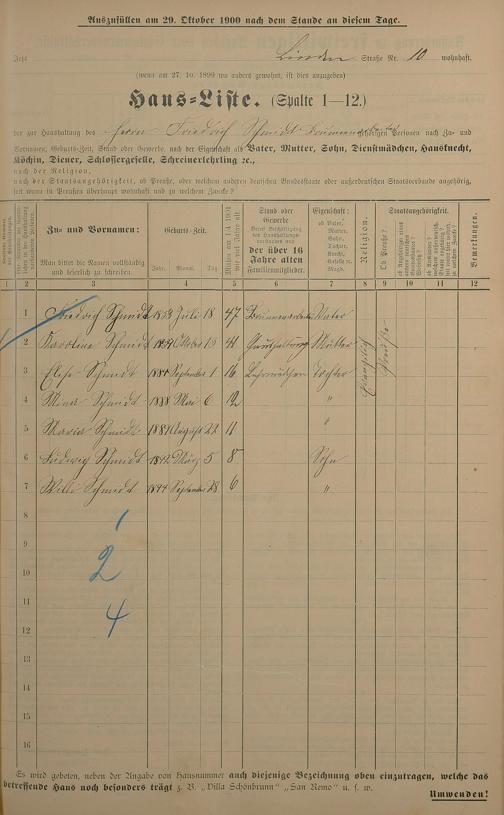 Auszufüllen am 29. Oktober 1900 nach dem Stande an diesem Tage.
Jetzt Linden Straße Nr. 10 wohnhaft.
(wenn am 27. 10. 1899 wo anders gewohnt, ist dies anzugeben)
Haus-Liste. (Spalte 1—12.)
der zur Haushaltung des Herrn Friedrich Schmidt gehörigen Personen nach Zu- und
Vornamen, Geburts-Zeit, Stand oder Gewerbe, nach der Eigenschaft als Vater, Mutter, Sohn, Dienstmädchen, Hausknecht,
Köchin, Diener, Schlossergeselle, Schreinerlehrling ꝛc.,
nach der Religion,
nach der Staatsangehörigkeit, ob Preuße, oder welchem anderen deutschen Bundesstaate oder außerdeutschen Staatsverbande angehörig,
seit wann in Preußen überhaupt wohnhaft und zu welchem Zwecke?
Zu- und Vornamen:
Man bittet die Namen vollständig
und leserlich zu schreiben.
Geburts-Zeit.
Jahr. Monat. Tag
Stand oder
Gewerbe
der über 16
Jahre alten
Familienmitglieder.
Eigenschaft:
ob Vater,
Mutter,
Sohn,
Tochter,
Knecht,
Geselle o.
Magd.
Religion.
Staatsangehörigkeit.
Ob Preuße?
Bemerkungen.
1 2 3 4 5 6 7 8 9 10 11 12
1 Friedrich Schmidt 1853 Juli 18 47 Vater
2 Karoline Schmidt Oktober 41 Mutter
3 Elise Schmidt 1884 September 1 16 Tochter
4 Mina Schmidt 1888 Mai 6 12 "
5 Maria Schmidt 1889 August 22 11 "
6 Ludwig Schmidt 1892 März 5 8 Sohn
7 Willi Schmidt 1894 September 28 6 "
Evangelisch
Preuße
8
9
10
11
12
13
14
15
16
1
2
4
Es wird gebeten, neben der Angabe von Hausnummer auch diejenige Bezeichnung oben einzutragen, welche das
betreffende Haus noch besonders trägt z. B. „Villa Schönbrunn" „San Remo" u. s. w.
Umwenden!